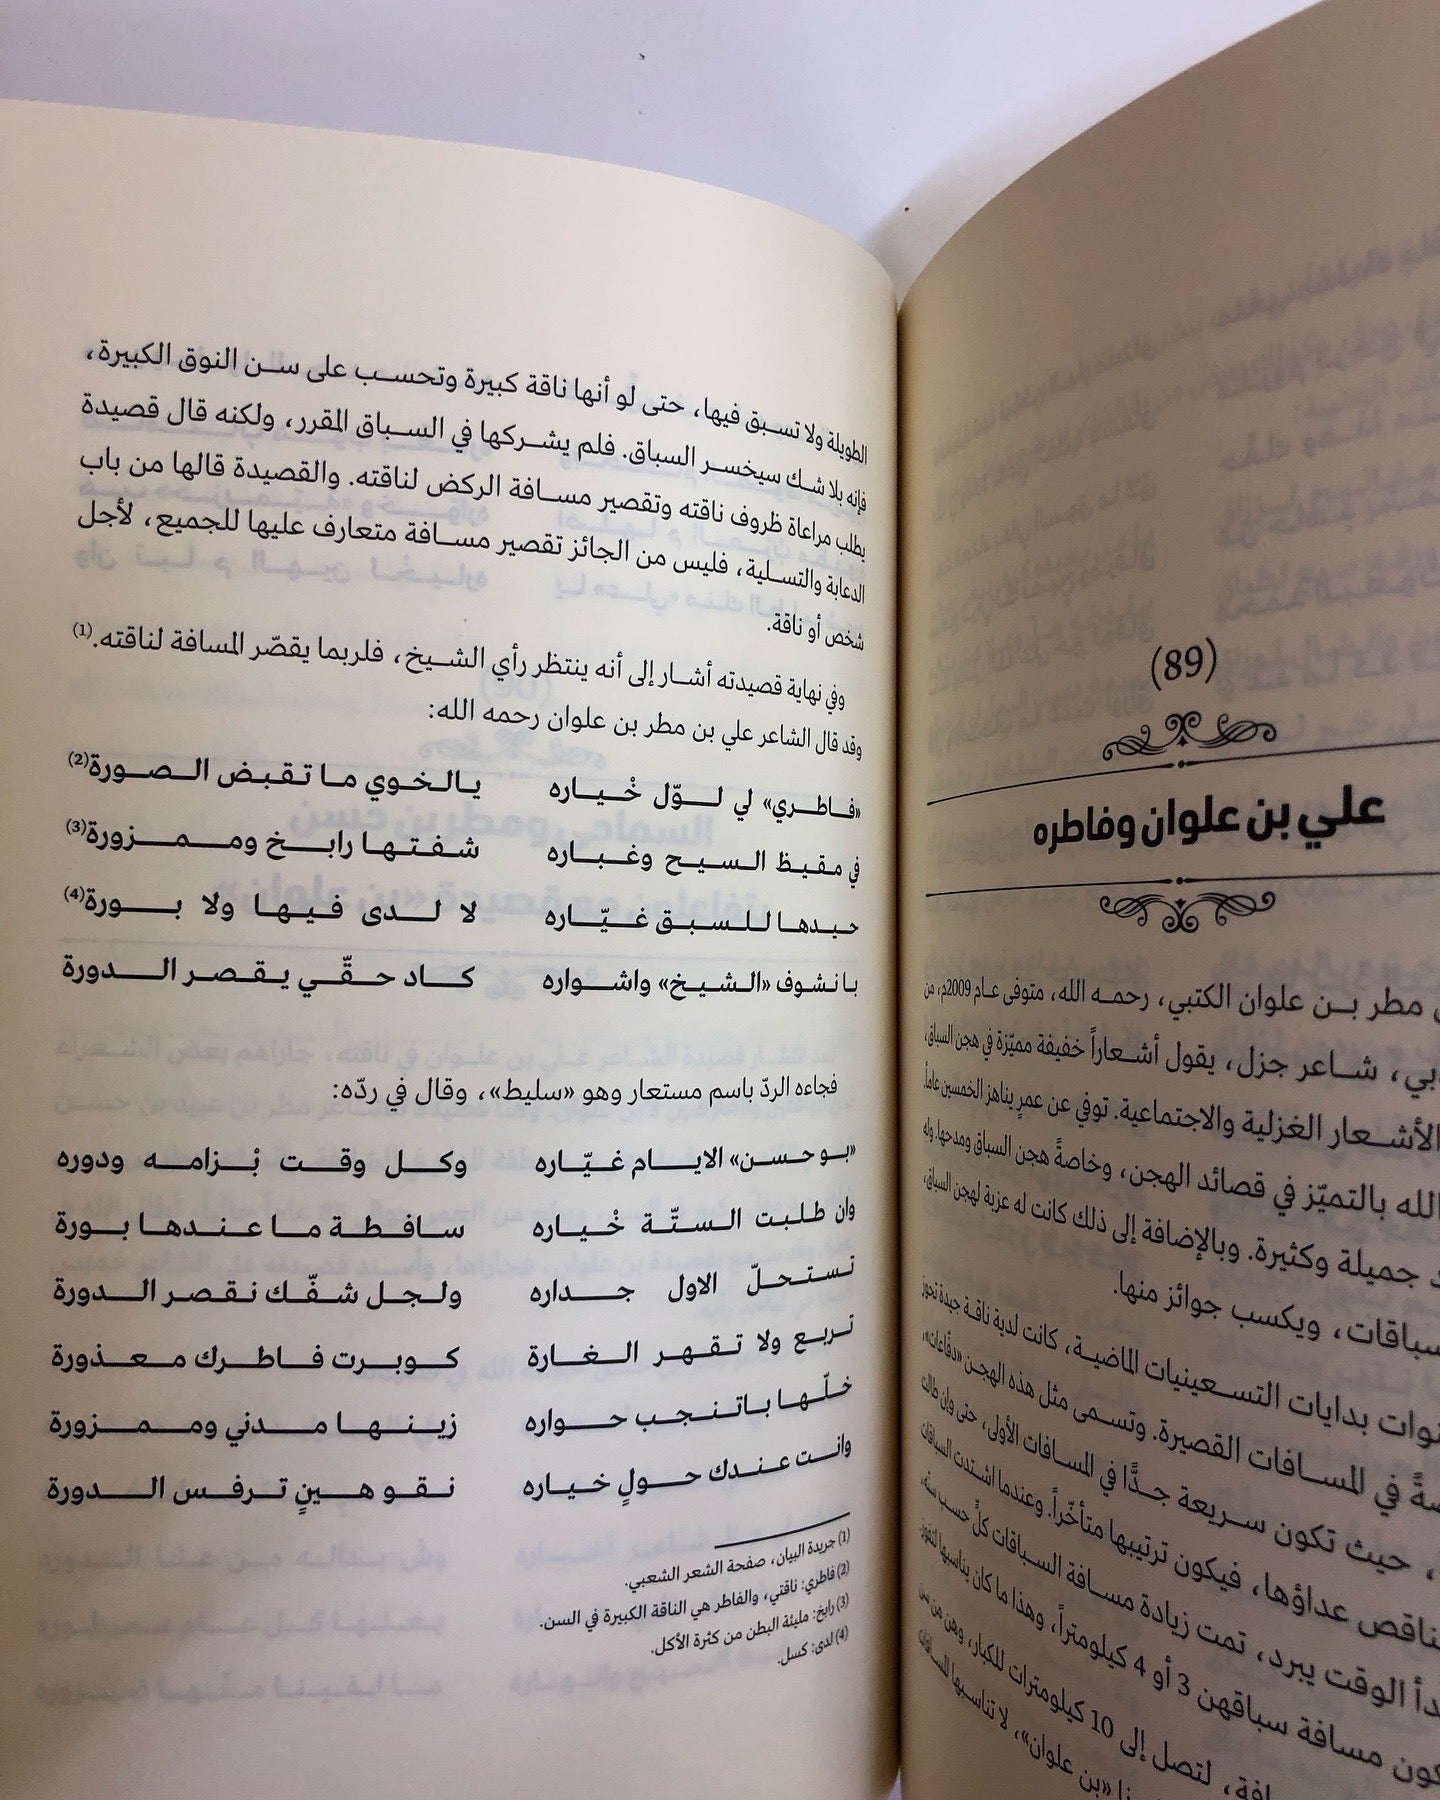 (89)
علي بن علوان وفاطره
مطر بن علوان الكتبي، رحمه الله، متوفى عام 2009م، من
شاعر جزل، يقول أشعاراً خفيفة مميّزة في هجن السباق،
الأشعار الغزلية والاجتماعية. توفي عن عمرٍ يناهز الخمسين عاماً.
الله بالتميّز في قصائد الهجن، وخاصةً هجن السباق ومدحها. وله
جميلة وكثيرة. وبالإضافة إلى ذلك كانت له عزبة لهجن السباق،
ويكسب جوائز منها.
بدايات التسعينيات الماضية، كانت لدية ناقة جيدة تحوز
في المسافات القصيرة. وتسمى مثل هذه الهجن «دفّاعات»،
حيث تكون سريعة جدًّا في المسافات الأولى، حتى وإن طالت
عداؤها، فيكون ترتيبها متأخّراً. وعندما اشتدت السباقات
الوقت يبرد، تمت زيادة مسافة السباقات كلّ حسب سنّه،
مسافة سباقهن 3 أو 4 كيلومتراً، وهذا ما كان يناسبها لتفوز.
لتصل إلى 10 كيلومترات للكبار، وهن من سن
«بن علوان»، لا تناسبها المسافات
الطويلة ولا تسبق فيها، حتى لو أنها ناقة كبيرة وتحسب على سن النوق الكبيرة،
فإنه بلا شك سيخسر السباق. فلم يشركها في السباق المقرر، ولكنه قال قصيدة
يطلب مراعاة ظروف ناقته وتقصير مسافة الركض لناقته. والقصيدة قالها من باب
الدعابة والتسلية، فليس من الجائز تقصير مسافة متعارف عليها للجميع، لأجل
شخص أو ناقة.
وفي نهاية قصيدته أشار إلى أنه ينتظر رأي الشيخ، فلربما يقصّر المسافة لناقته.(1)
وقد قال الشاعر علي بن مطر بن علوان رحمه الله:
«فاطري» لي لوّل خْياره يالخوي ما تقبض الصورة(2)
في مقيظ السيح وغباره شفتها رابخ وممزورة(3)
حيدها للسبق غيّاره لا لدى فيها ولا بورة(4)
بانشوف «الشيخ» واشواره كاد حقّي يقصر الدورة
فجاءه الردّ باسم مستعار وهو «سليط»، وقال في ردّه:
«بو حسن» الايام غيّاره وكل وقت بْزامه ودوره
وان طلبت الستّة خْياره سافطة ما عندها بورة
تستحلّ الاول جداره ولجل شفّك نقصر الدورة
تربع ولا تقهر الغارة كوبرت فاطرك معذورة
خلّها باتنجب حواره زينها مدني وممزورة
وانت عندك حولٍ خياره نقو هينٍ ترفس الدورة
(1) جريدة البيان، صفحة الشعر الشعبي.
(2) فاطري: ناقتي، والفاطر هي الناقة الكبيرة في السن.
(3) رابخ: مليئة البطن من كثرة الأكل.
(4) لدى: كسل.